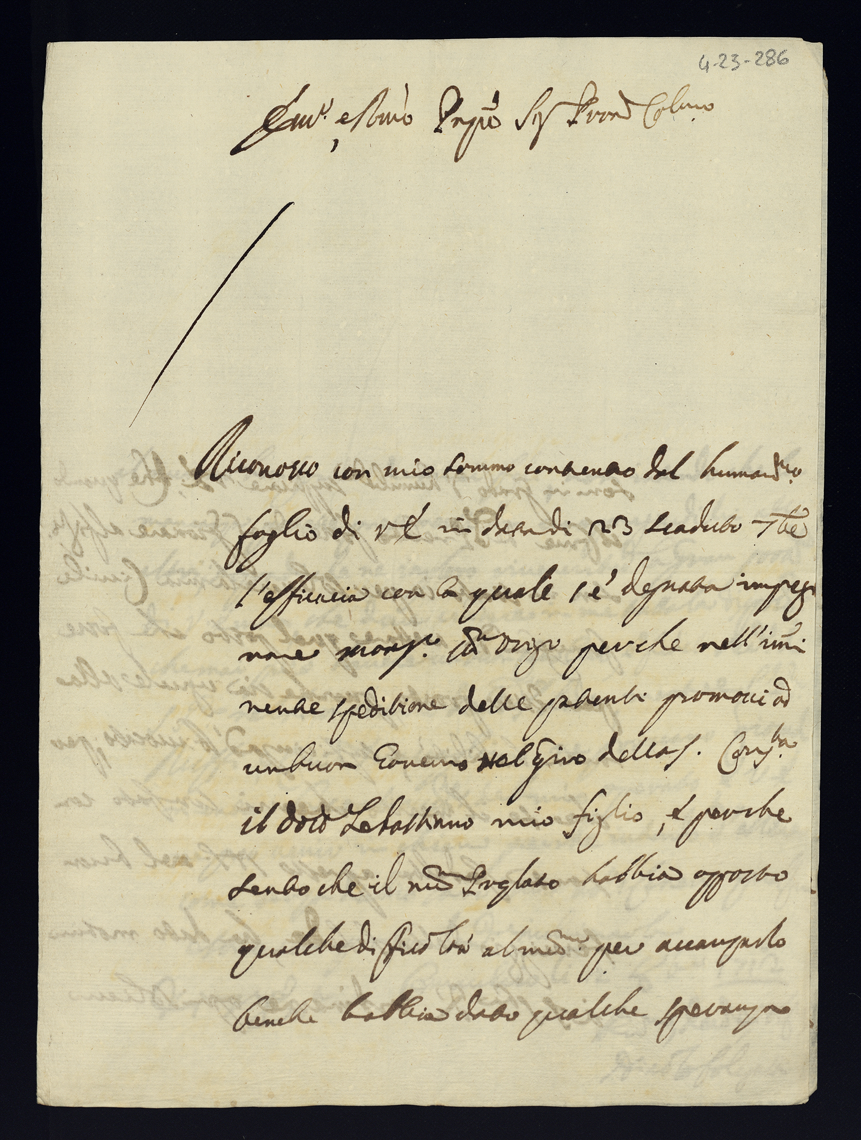 4-23-286
Em.º e Rmo Prpe Sig Pron Colmo
Riconosco con mio sommo contento dal humanmo
foglio di V.E. in data di 23 scaduto 7bre
l'efficacia con la quale s'é degnata impeg
nare monsr. perche nell'immi
nente speditione delle patenti promovi ad
un buon Governo nel giro della S. Consta
il dotto Sebastiano mio figlio, e perche
sento che il mdo Prelato habbia opposto
qualche difficoltà al medmo per avanzarlo
benche habbia dato qualche speranza